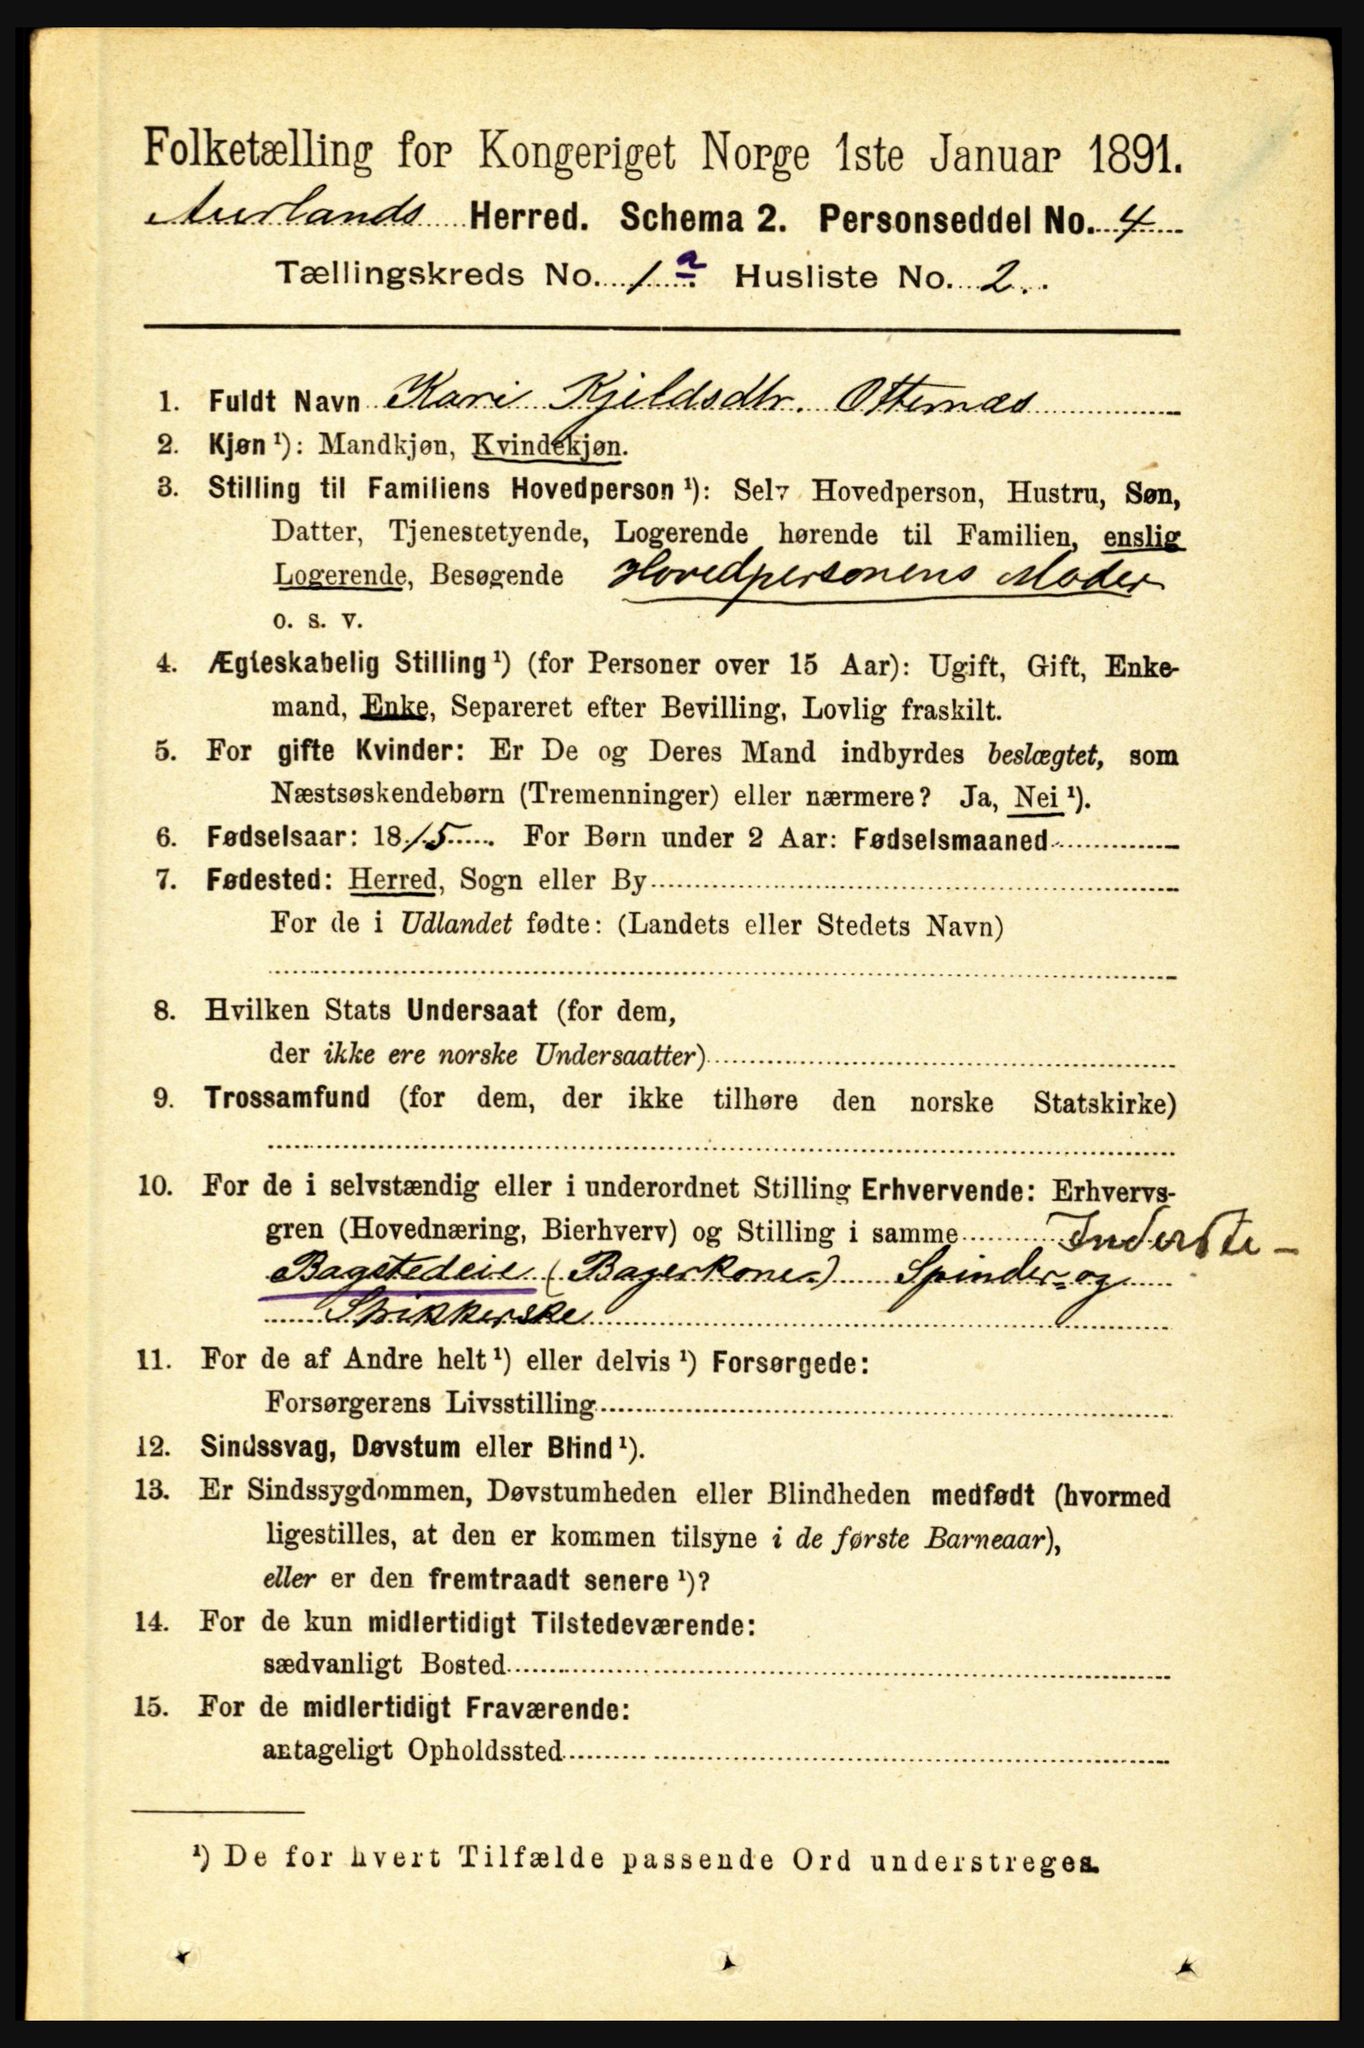 Folketælling for Kongeriget Norge 1ste Januar 1891.
Aurlands Herred. Schema 2. Personseddel No. 4
Tællingskreds No. 1 a. Husliste No. 2.
1. Fuldt Navn Kari Kjeldsdtr. Otternæs
2. Kjøn ¹): Mandkjøn, Kvindekjøn.
3. Stilling til Familiens Hovedperson ¹): Selv Hovedperson, Hustru, Søn,
Datter, Tjenestetyende, Logerende hørende til Familien, enslig
Logerende, Besøgende Hovedpersonens Moder
o. s. v.
4. Ægteskabelig Stilling ¹) (for Personer over 15 Aar): Ugift, Gift, Enke-
mand, Enke, Separeret efter Bevilling, Lovlig fraskilt.
5. For gifte Kvinder: Er De og Deres Mand indbyrdes beslægtet, som
Næstsøskendebørn (Tremenninger) eller nærmere? Ja, Nei ¹).
6. Fødselsaar: 1815. For Børn under 2 Aar: Fødselsmaaned
7. Fødested: Herred, Sogn eller By
For de i Udlandet fødte: (Landets eller Stedets Navn)
8. Hvilken Stats Undersaat (for dem,
der ikke ere norske Undersaatter)
9. Trossamfund (for dem, der ikke tilhøre den norske Statskirke)
10. For de i selvstændig eller i underordnet Stilling Erhvervende: Erhvervs-
gren (Hovednæring, Bierhverv) og Stilling i samme Inderste-
Bagstedeie (Bagerkone) Spinder- og
Strikkerske
11. For de af Andre helt ¹) eller delvis ¹) Forsørgede:
Forsørgerens Livsstilling
12. Sindssvag, Døvstum eller Blind ¹).
13. Er Sindssygdommen, Døvstumheden eller Blindheden medfødt (hvormed
ligestilles, at den er kommen tilsyne i de første Barneaar),
eller er den fremtraadt senere ¹)?
14. For de kun midlertidigt Tilstedeværende:
sædvanligt Bosted
15. For de midlertidigt Fraværende:
antageligt Opholdssted
¹) De for hvert Tilfælde passende Ord understreges.